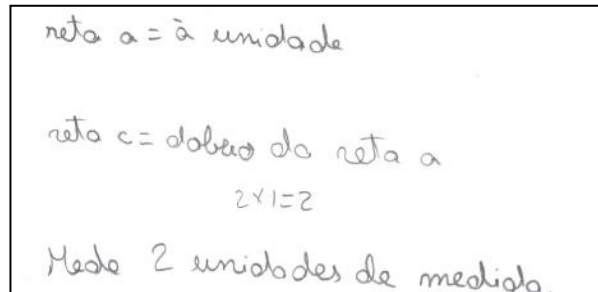 reta a = à unidade
reta c = dobro da reta a
2×1=2
Mede 2 unidades de medida.